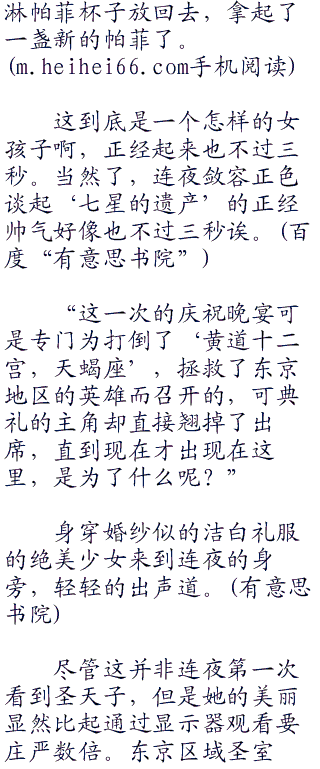 淋帕菲杯子放回去，拿起了
一盏新的帕菲了。
(m.heihei66.com手机阅读)
这到底是一个怎样的女
孩子啊，正经起来也不过三
秒。当然了，连夜敛容正色
谈起‘七星的遗产’的正经
帅气好像也不过三秒诶。(百
度“有意思书院”)
“这一次的庆祝晚宴可
是专门为打倒了‘黄道十二
宫，天蝎座’，拯救了东京
地区的英雄而召开的，可典
礼的主角却直接翘掉了出
席，直到现在才出现在这
里，是为了什么呢？”
身穿婚纱似的洁白礼服
的绝美少女来到连夜的身
旁，轻轻的出声道。(有意思
书院)
尽管这并非连夜第一次
看到圣天子，但是她的美丽
显然比起通过显示器观看要
庄严数倍。东京区域圣室